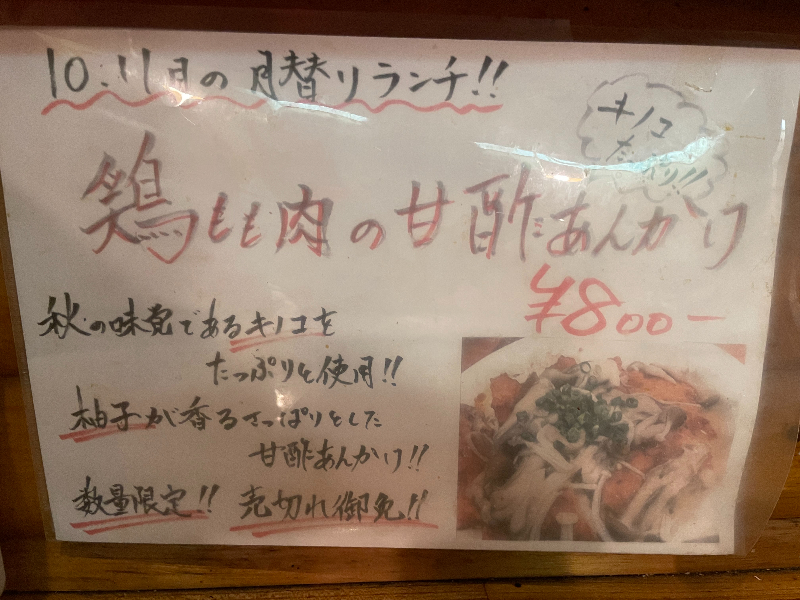 10.11月の月替りランチ!!
キノコ
たっぷり!!
鶏もも肉の甘酢あんかけ
¥800-
秋の味覚であるキノコを
たっぷりと使用!!
柚子が香るさっぱりとした
甘酢あんかけ!!
数量限定!! 売切れ御免!!